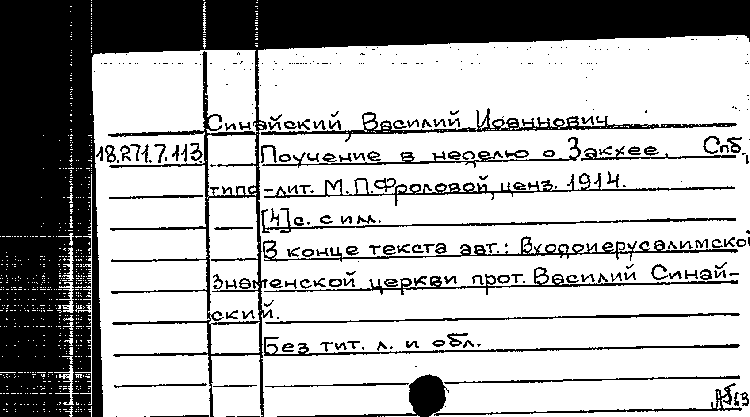 Синайский, Василий Иоаннович
18.271.7.113 Поучение в неделю о Закхее. Спб,
типо-лит. М.П.Фроловой, ценз. 1914.
[4]с. с ил.
В конце текста авт.: Входоиерусалимской
Знаменской церкви прот. Василий Синай-
ский.
Без тит. л. и обл.